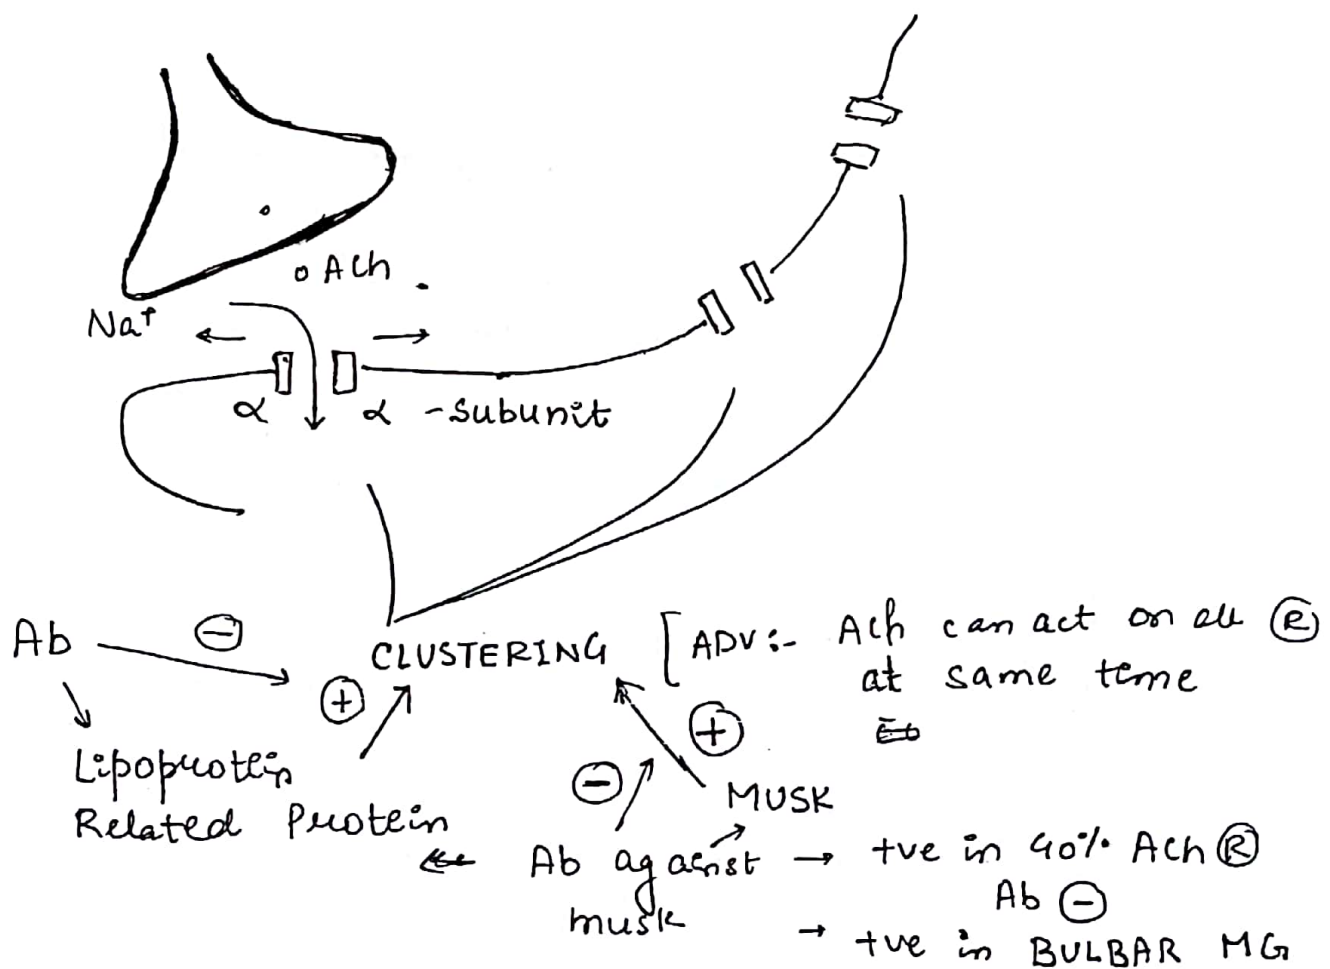 Ach
Na⁺
α α - subunit
Ab ⊖ CLUSTERING [ ADV :- Ach can act on all Ⓡ
at same time
⊕ ⊕
Lipoprotein
Related Protein
⊖ MUSK
Ab against → +ve in 40% Ach Ⓡ
musk Ab ⊖
→ +ve in BULBAR MG